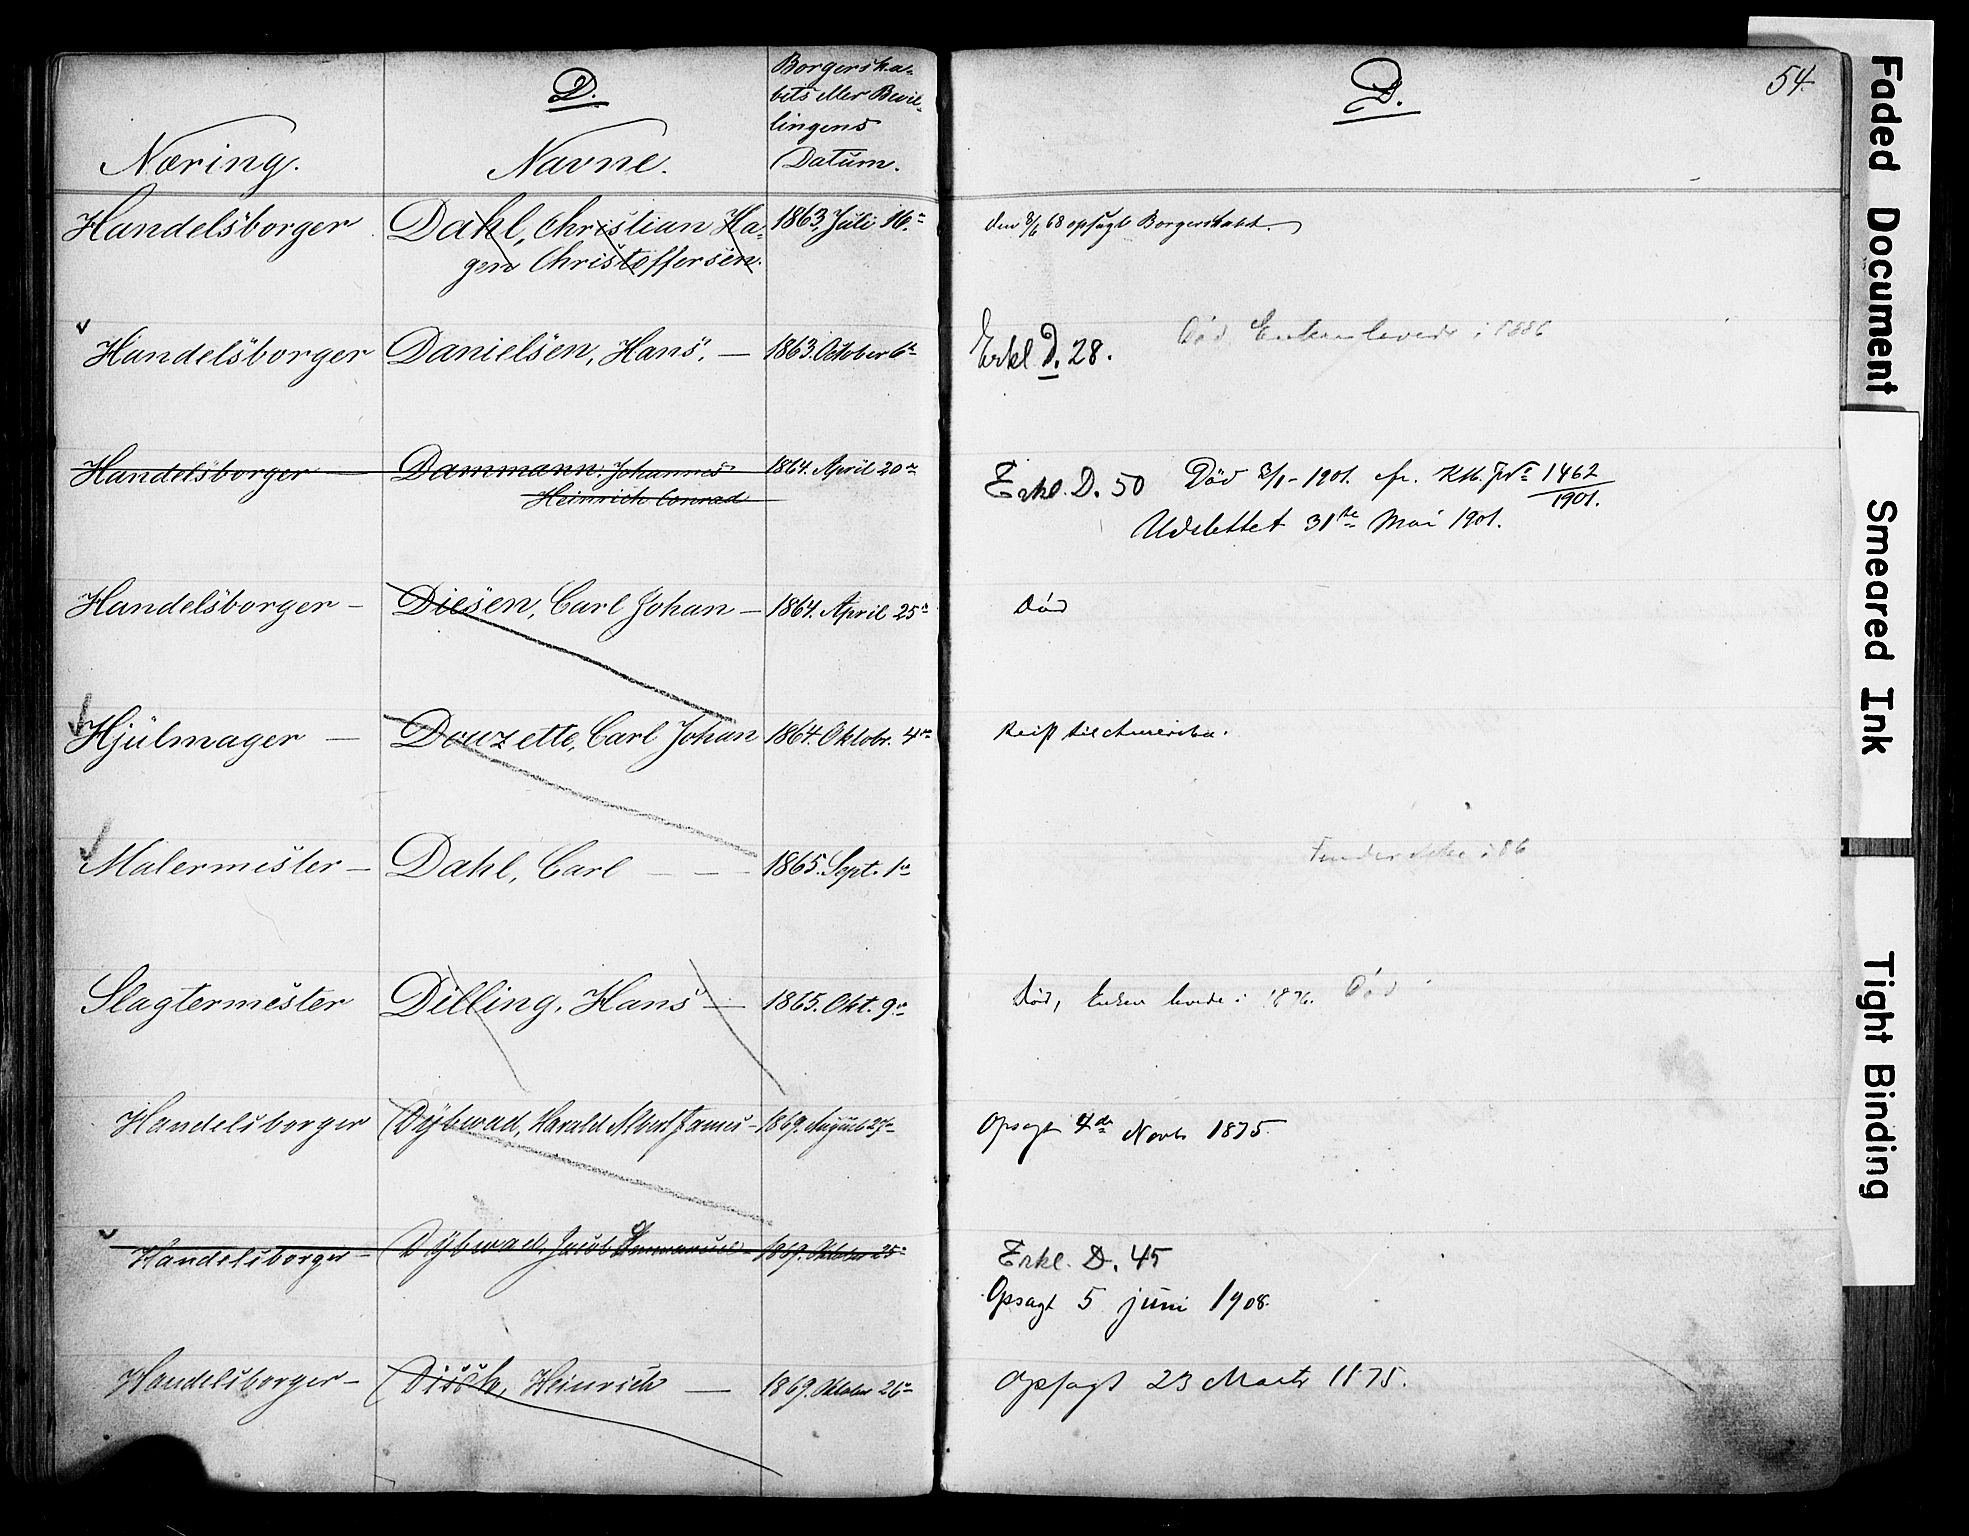 D.
Næring.
Navne.
Borgerska-
bets eller Bevil-
lingens
Datum.
D.
54.
Handelsborger
Dahl, Christian Ha-
gen Christoffersen.
1863, Juli 16.
den 8/6 68 opsagt Borgerskabet.
Handelsborger
Danielsen, Hans. —
1863. October 6
Erkl D. 28.
Død, Enken levede i 1886
Handelsborger —
Dammann, Johannes
Heinrich Conrad
1864. April 20
Erkl. D. 50 Död 8/1 - 1901. cfr. Kth. JNo 1462/1901.
Udslettet 31te Mai 1901.
Handelsborger —
Diesen, Carl Johan —
1864. April 25
Død
Hjülmager —
Douzette, Carl Johan
1864. Oktobr. 4
Reist til Amerika.
Malermester —
Dahl, Carl — —
1865. Sept. 1
Findes ikke i 86
Slagtermester
Dilling, Hans —
1865. Okt. 9
Død, Enken levede i 1876. Død
Handelsborger
Dÿbwad, Harald Albert James —
1869. August 27
Opsagt 4de Novb 1875.
Handelsborger —
Dÿbwad, Jacob Emmanuel —
1869. Oktober 25
Erkl. D. 45
Opsagt 5 juni 1908.
Handelsborger —
Disch, Heinrich —
1869. Oktober 26
Opsagt 23 Marts 1875.
Faded Document
Smeared Ink
Tight Binding